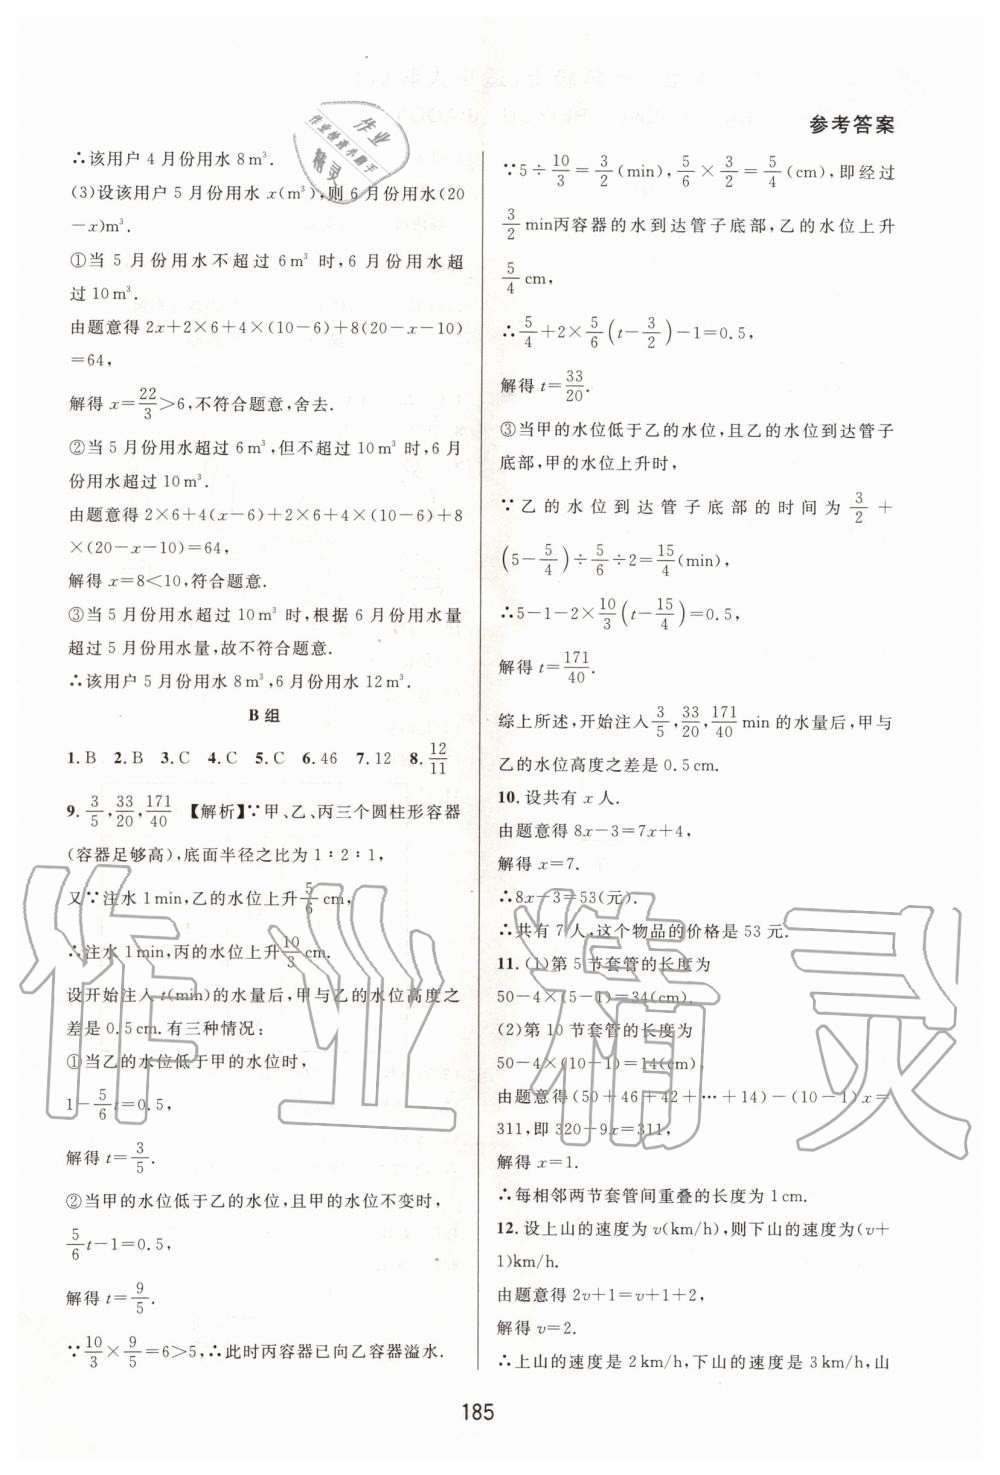 参考答案
∴该用户 4 月份用水 8 m³.
(3)设该用户 5 月份用水 x(m³),则 6 月份用水(20
-x)m³.
①当 5 月份用水不超过 6 m³ 时,6 月份用水超
过 10 m³.
由题意得 2x+2×6+4×(10-6)+8(20-x-10)
=64,
解得 x=22/3>6,不符合题意,舍去.
②当 5 月份用水超过 6 m³,但不超过 10 m³ 时,6 月
份用水超过 10 m³.
由题意得 2×6+4(x-6)+2×6+4×(10-6)+8
×(20-x-10)=64,
解得 x=8<10,符合题意.
③当 5 月份用水超过 10 m³ 时,根据 6 月份用水量
超过 5 月份用水量,故不符合题意.
∴该用户 5 月份用水 8 m³,6 月份用水 12 m³.
B 组
1. B 2. B 3. C 4. C 5. C 6. 46 7. 12 8. 12/11
9. 3/5,33/20,171/40 【解析】∵甲、乙、丙三个圆柱形容器
(容器足够高),底面半径之比为 1∶2∶1,
又∵注水 1 min,乙的水位上升 5/6 cm,
∴注水 1 min,丙的水位上升 10/3 cm.
设开始注入 t(min)的水量后,甲与乙的水位高度之
差是 0.5 cm.有三种情况:
①当乙的水位低于甲的水位时,
1-5/6 t=0.5,
解得 t=3/5.
②当甲的水位低于乙的水位,且甲的水位不变时,
5/6 t-1=0.5,
解得 t=9/5.
∵10/3×9/5=6>5,∴此时丙容器已向乙容器溢水.
∵5÷10/3=3/2(min),5/6×3/2=5/4(cm),即经过
3/2 min丙容器的水到达管子底部,乙的水位上升
5/4 cm,
∴5/4+2×5/6(t-3/2)-1=0.5,
解得 t=33/20.
③当甲的水位低于乙的水位,且乙的水位到达管子
底部,甲的水位上升时,
∵乙的水位到达管子底部的时间为 3/2+
(5-5/4)÷5/6÷2=15/4(min),
∴5-1-2×10/3(t-15/4)=0.5,
解得 t=171/40.
综上所述,开始注入 3/5,33/20,171/40 min 的水量后,甲与
乙的水位高度之差是 0.5 cm.
10. 设共有 x 人.
由题意得 8x-3=7x+4,
解得 x=7.
∴8x-3=53(元).
∴共有 7 人,这个物品的价格是 53 元.
11. (1)第 5 节套管的长度为
50-4×(5-1)=34(cm).
(2)第 10 节套管的长度为
50-4×(10-1)=14(cm).
由题意得(50+46+42+…+14)-(10-1)x=
311,即 320-9x=311,
解得 x=1.
∴每相邻两节套管间重叠的长度为 1 cm.
12. 设上山的速度为 v(km/h),则下山的速度为(v+
1)km/h.
由题意得 2v+1=v+1+2,
解得 v=2.
∴上山的速度是 2 km/h,下山的速度是 3 km/h,山
185
作业精灵
作业
作业检查小助手
精灵